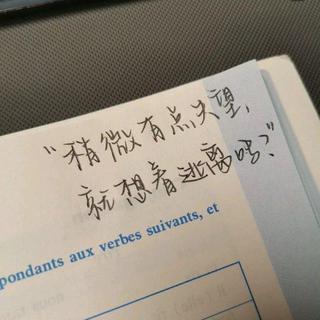 “稍微有点失望,
就想着逃离吗?”
pondants aux verbes suivants, et